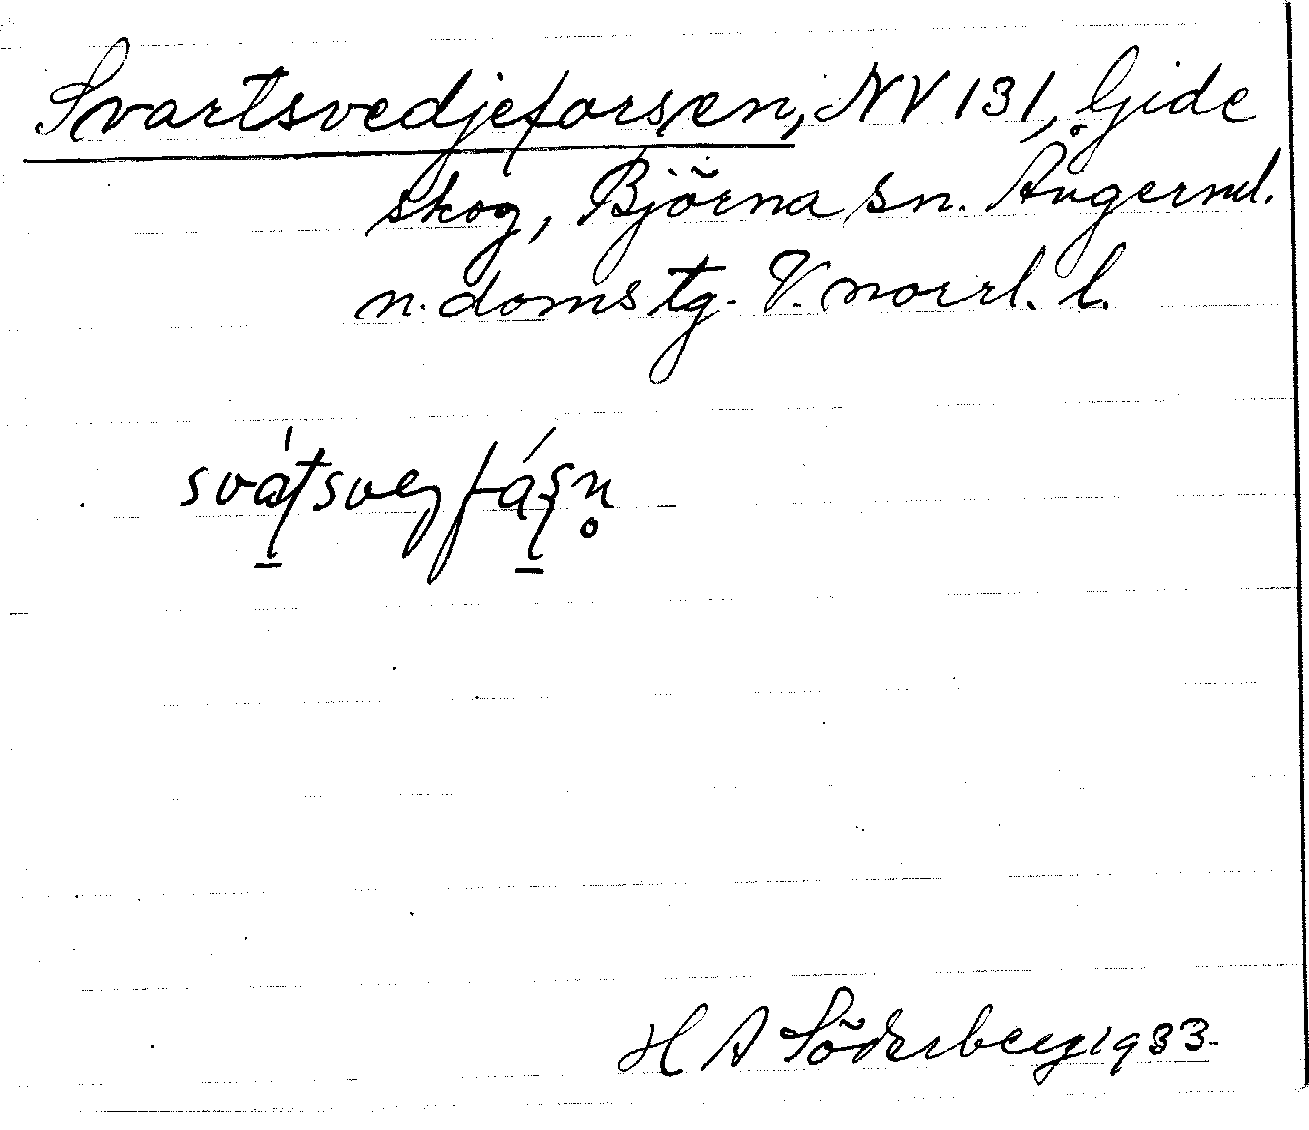 Svartsvedjeforsen, NV 131, Gide
skog, Björna sn. Ångerml.
n. domstg. V. norrl. l.
H A Söderberg 1933.